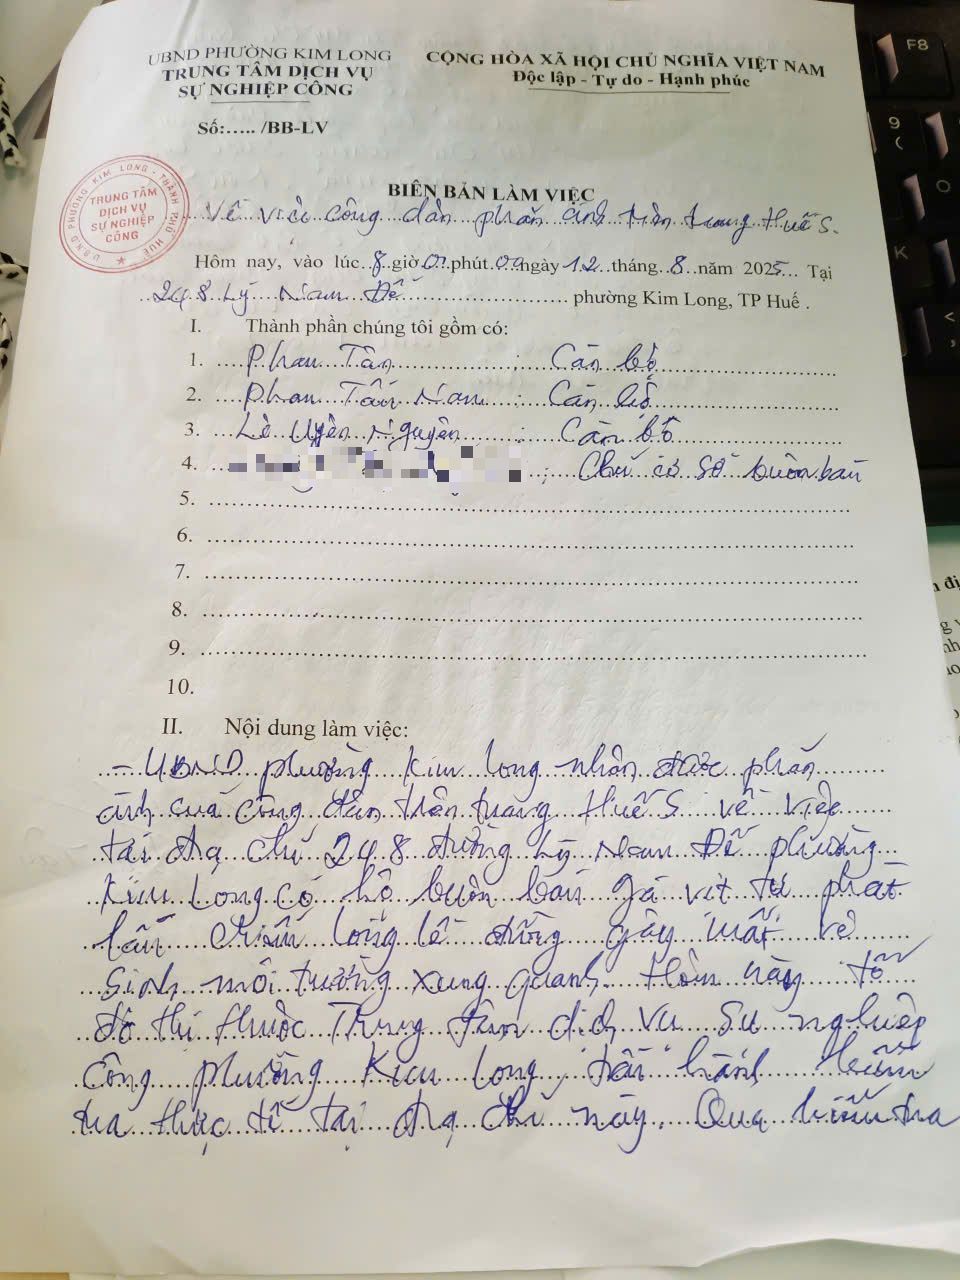 UBND PHƯỜNG KIM LONG
TRUNG TÂM DỊCH VỤ
SỰ NGHIỆP CÔNG
CỘNG HÒA XÃ HỘI CHỦ NGHĨA VIỆT NAM
Độc lập - Tự do - Hạnh phúc
Số:..... /BB-LV
U.B.N.D PHƯỜNG KIM LONG - THÀNH PHỐ HUẾ
TRUNG TÂM
DỊCH VỤ
SỰ NGHIỆP
CÔNG
BIÊN BẢN LÀM VIỆC
Về việc công dân phản ánh trên trang Huế S.
Hôm nay, vào lúc 8 giờ 00 phút 00 ngày 12 tháng 8 năm 2025 Tại
248 Lý Nam Đế phường Kim Long, TP Huế .
I. Thành phần chúng tôi gồm có:
1. Phan Tân : Cán bộ
2. Phan Tấn Nam : Cán bộ
3. Lê Uyên Nguyên : Cán bộ
4. : Chủ cơ sở buôn bán
5.
6.
7.
8.
9.
10.
II. Nội dung làm việc:
- UBND phường Kim Long nhận được phản
ánh của công dân trên trang Huế S về việc
tại địa chỉ 248 đường Lý Nam Đế phường
Kim Long có hộ buôn bán gà vịt tự phát
lấn chiếm lòng lề đường gây mất vệ
sinh môi trường xung quanh. Hôm nay tổ
đô thị thuộc Trung tâm dịch vụ sự nghiệp
công phường Kim Long, tiến hành kiểm
tra thực tế tại địa chỉ này. Qua kiểm tra